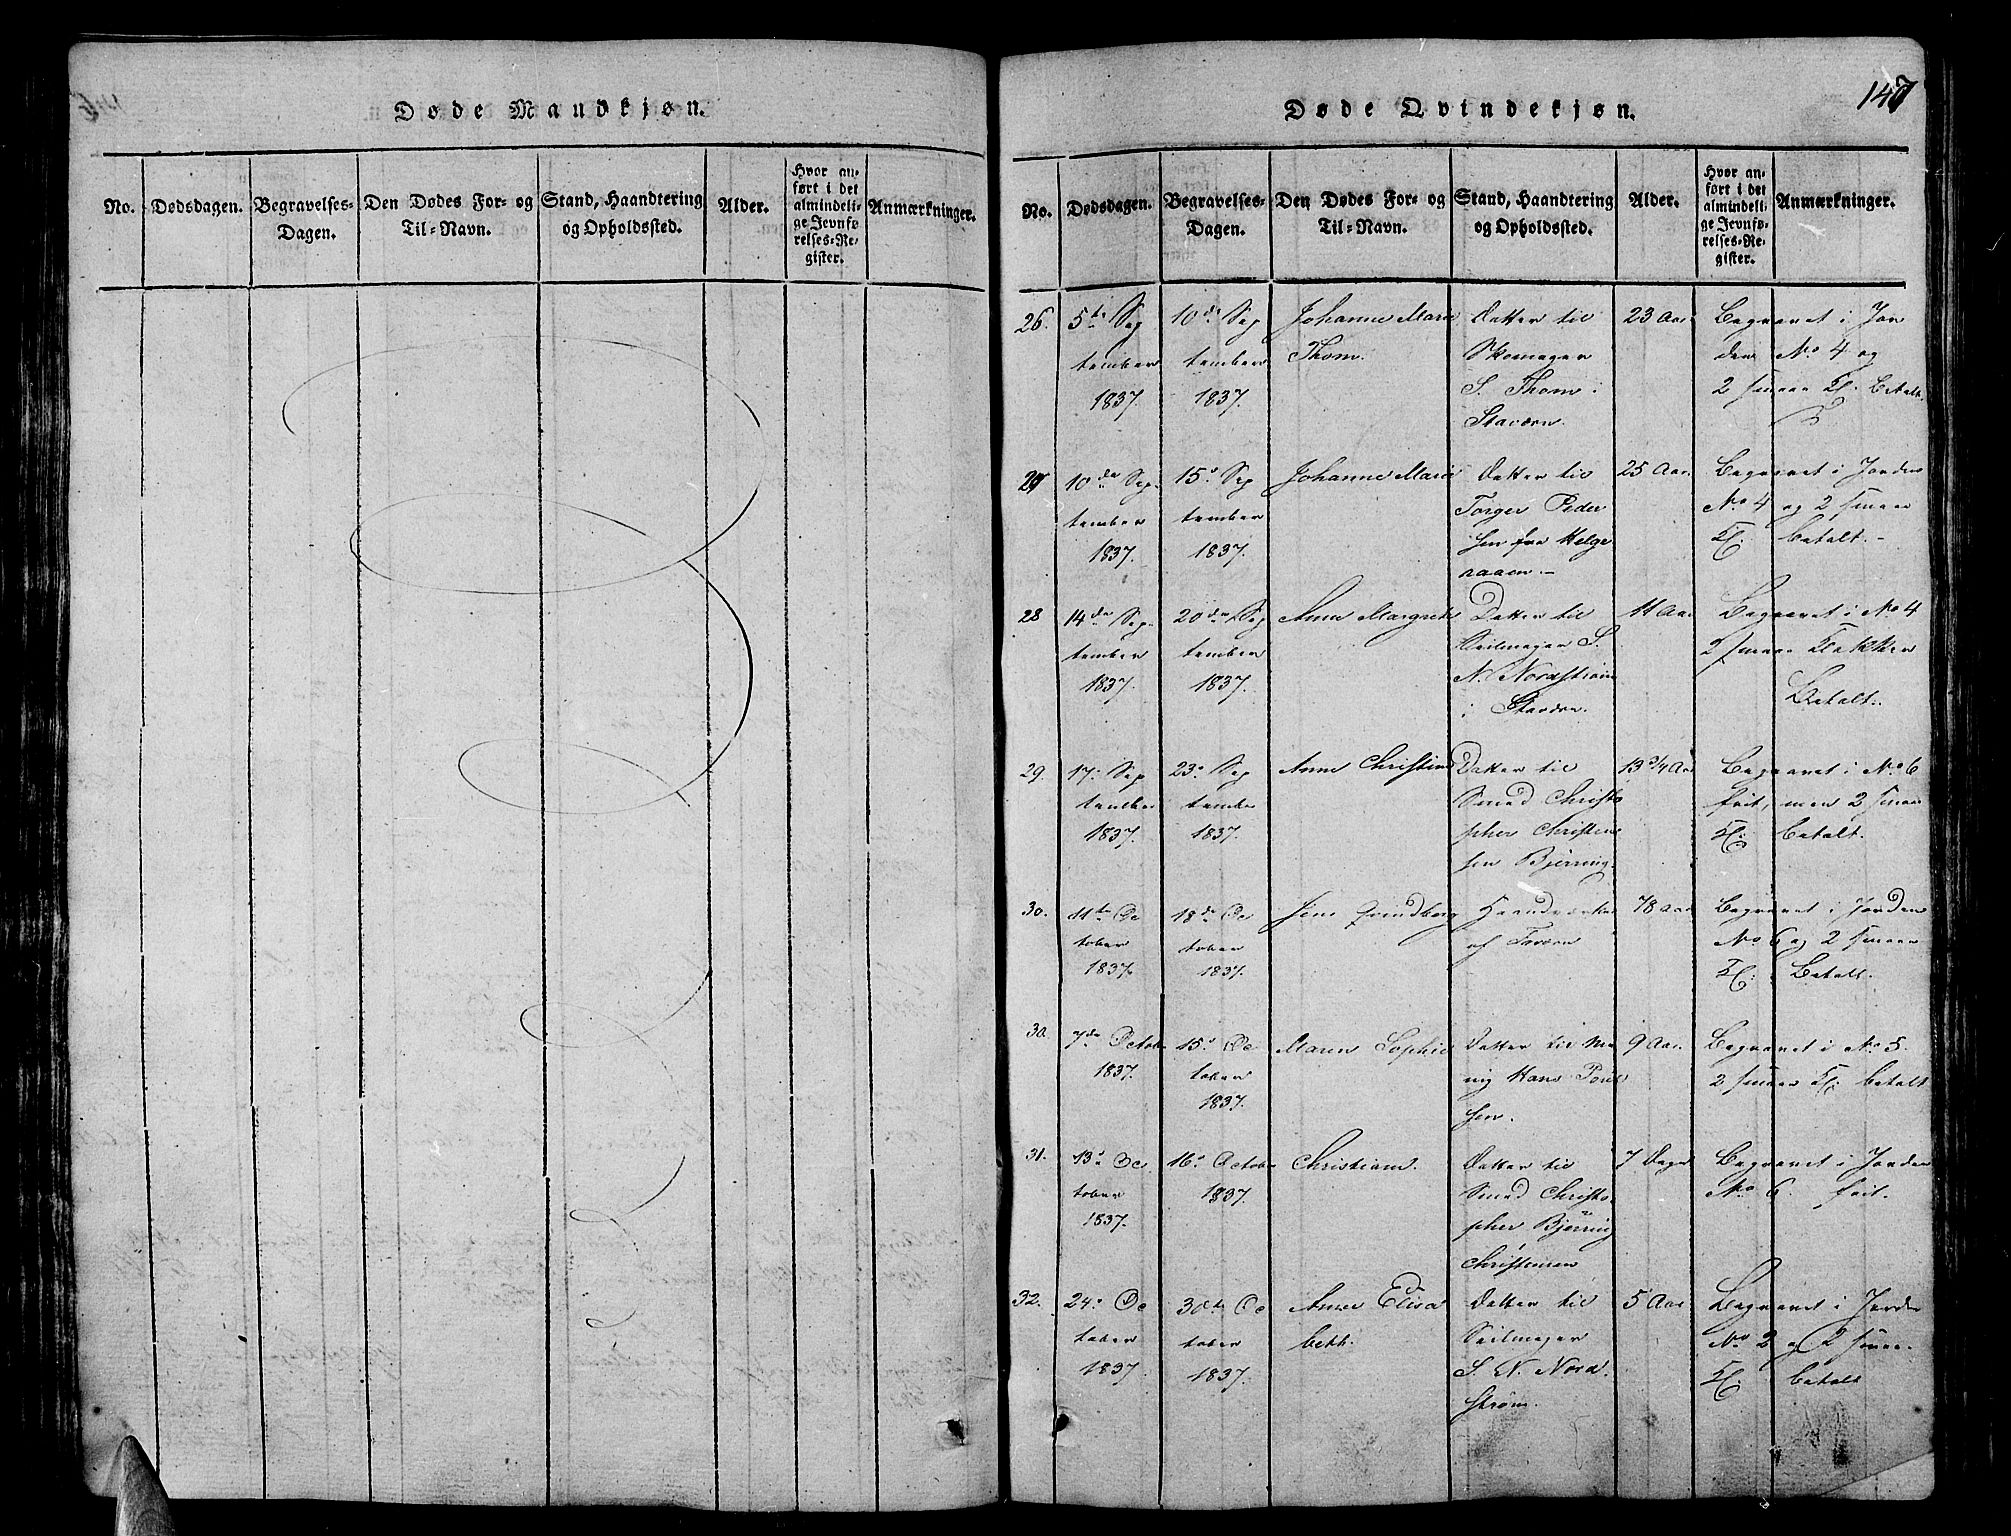 Døde Mandkjøn.
No.
Dødsdagen.
Begravelses-
Dagen.
Den Dødes For- og
Til-Navn.
Stand, Haandtering
og Opholdssted.
Alder.
Hvor an-
ført i det
almindeli-
ge Jevnfø-
relses-Re-
gister.
Anmærkninger.
Døde Qvindekjøn.
147
No.
Dødsdagen.
Begravelses-
Dagen.
Den Dødes For- og
Til-Navn.
Stand, Haandtering
og Opholdssted.
Alder.
Hvor an-
ført i det
almindeli-
ge Jevnfø-
relses-Re-
gister.
Anmærkninger.
26.
5te Sep
tember
1837.
10de Sep
tember
1837.
Johanne Marie
Thom.
Datter til
Skomager
S. Thom i
Staværn.
23 Aar
Begravet i Jor
den No 4 og
2 smaae Kl. betalt.
27
10de Sep-
tember
1837.
15de Sep
tember
1837.
Johanne Marie
Datter til
Torger Peder
sen fra Helge
raaen.
25 Aar.
Begravet i Jorden
No 4 og 2 smaae
Kl. betalt.
28
14de Sep-
tember
1837.
20de Sep
tember
1837.
Anne Margrete
Datter til
Seilmager S.
N. Nordstrøm
i Staværn.
11 Aar
Begravet i No 4
2 smaae Klokker
Betalt.
29.
17. Sep
tember
1837.
23. Sep
tember
1837.
Anne Christine
Datter til
Smed Christo
pher Christen
sen Bjørring.
13 3/4 Aar
Begravet i No 6
frit, men 2 smaae
Kl. betalt.
30.
11te Oc
tober
1837.
18de Oc
tober
1837.
78 Aar
Begravet i Jorden
No 6 og 2 smaae
Kl. Betalt.
30.
7de Octob
1837.
15. Oc
tober
1837.
Maren Sophie
Datter til
Hans Poul
sen.
9 Aar.
Begravet i No 5.
2 smaae Kl. betalt
31.
13. Oc
tober
1837.
16. October
1837.
Christiane.
Datter til
Smed Christo
pher Bjørring
Christensen
7 Dage
Begravet i Jorden
No 6. frit.
32.
24. Oc
tober
1837.
30te Oc
tober
1837.
Anne Elisa
beth.
Datter til
Seilmager
S. N. Nord
strøm.
5 Aar
Begravet i Jorden
No 2 og 2 smaae
Kl. betalt